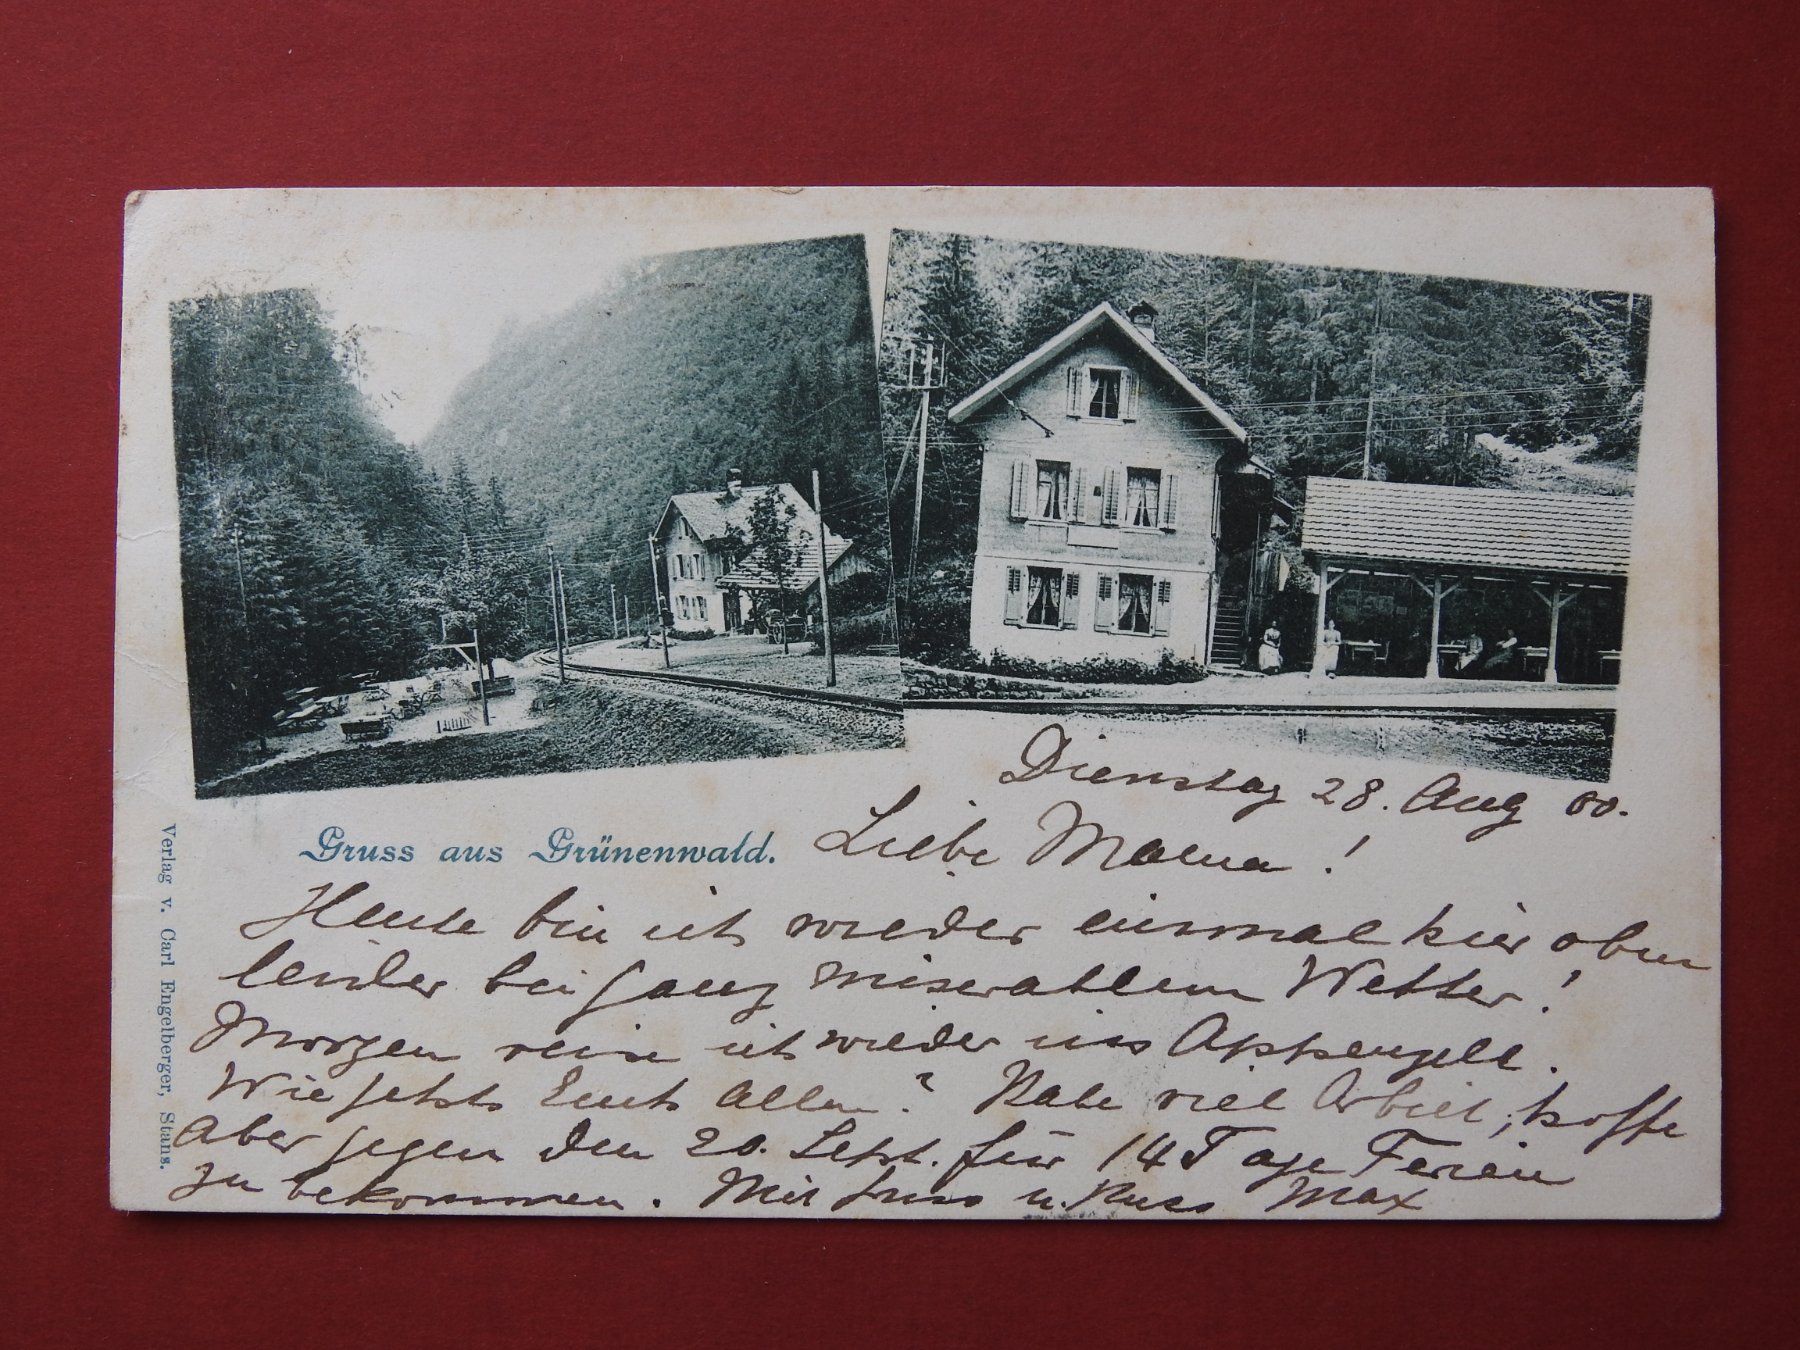 Gruss aus Grünenwald.
Verlag v. Carl Engelberger, Stans.
Dienstag 28. Aug 00.
Liebe Mama!
Heute bin ich wieder einmal hier oben
leider bei ganz miserablem Wetter!
Morgen reise ich wieder ins Appenzell.
Wie geht's Euch Allen? Habe viel Arbeit, hoffe
aber gegen den 20. Sept. für 14 Tage Ferien
zu bekommen. Mit Gruss u. Kuss Max